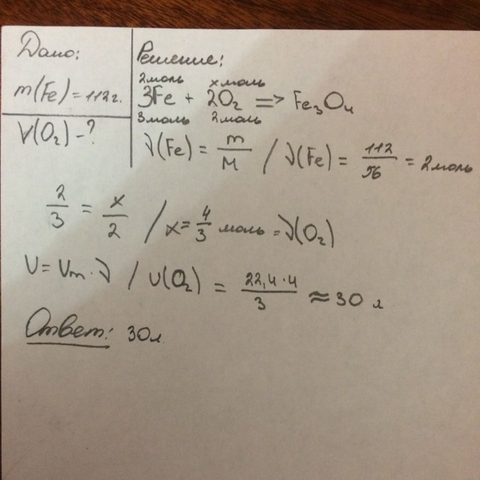 Дано:
m(Fe) = 112г.
V(O₂) - ?
Решение:
2моль x моль
3Fe + 2O₂ => Fe₃O₄
3моль 2моль
ν(Fe) = m/M / ν(Fe) = 112/56 = 2моль
2/3 = x/2 / x = 4/3 моль = ν(O₂)
V = Vm · ν / V(O₂) = 22,4·4/3 ≈ 30 л
Ответ: 30л.